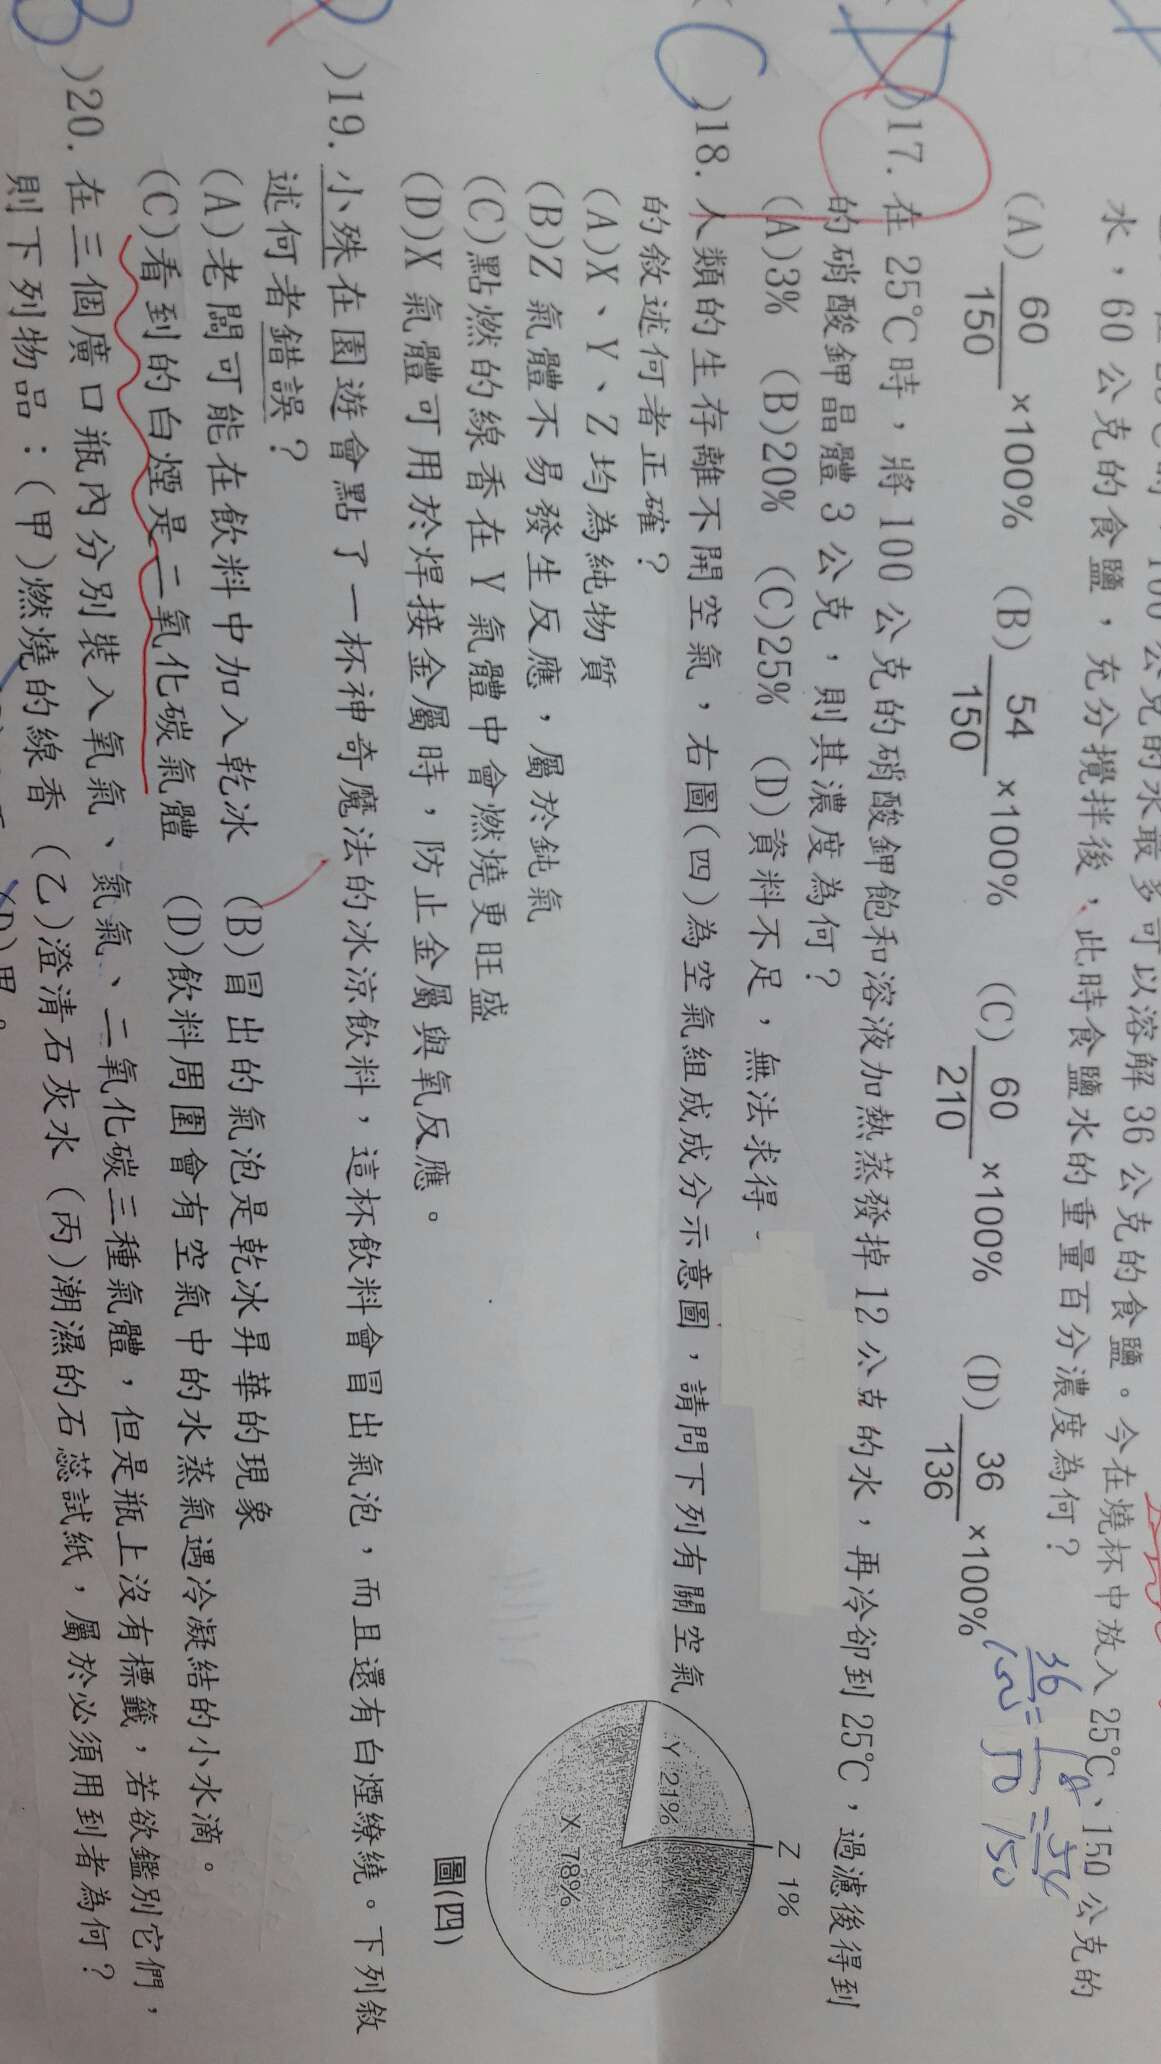 100公克的水最多可以溶解36公克的食鹽。今在燒杯中放入25℃、150公克的
水，60公克的食鹽，充分攪拌後，此時食鹽水的重量百分濃度為何？
(A) 60/150 ×100% (B) 54/150 ×100% (C) 60/210 ×100% (D) 36/136 ×100%
D )17. 在25℃時，將100公克的硝酸鉀飽和溶液加熱蒸發掉12公克的水，再冷卻到25℃，過濾後得到
的硝酸鉀晶體3公克，則其濃度為何？
(A)3% (B)20% (C)25% (D)資料不足，無法求得
C )18. 人類的生存離不開空氣，右圖(四)為空氣組成成分示意圖，請問下列有關空氣
的敘述何者正確？
(A)X、Y、Z均為純物質
(B)Z氣體不易發生反應，屬於鈍氣
(C)點燃的線香在Y氣體中會燃燒更旺盛
(D)X氣體可用於焊接金屬時，防止金屬與氧反應。
Z 1%
Y 21%
X 78%
圖(四)
)19. 小殊在園遊會點了一杯神奇魔法的冰涼飲料，這杯飲料會冒出氣泡，而且還有白煙繚繞。下列敘
述何者錯誤？
(A)老闆可能在飲料中加入乾冰 (B)冒出的氣泡是乾冰昇華的現象
(C)看到的白煙是二氧化碳氣體 (D)飲料周圍會有空氣中的水蒸氣遇冷凝結的小水滴。
B )20. 在三個廣口瓶內分別裝入氧氣、氮氣、二氧化碳三種氣體，但是瓶上沒有標籤，若欲鑑別它們，
則下列物品：(甲)燃燒的線香 (乙)澄清石灰水 (丙)潮濕的石蕊試紙，屬於必須用到者為何？